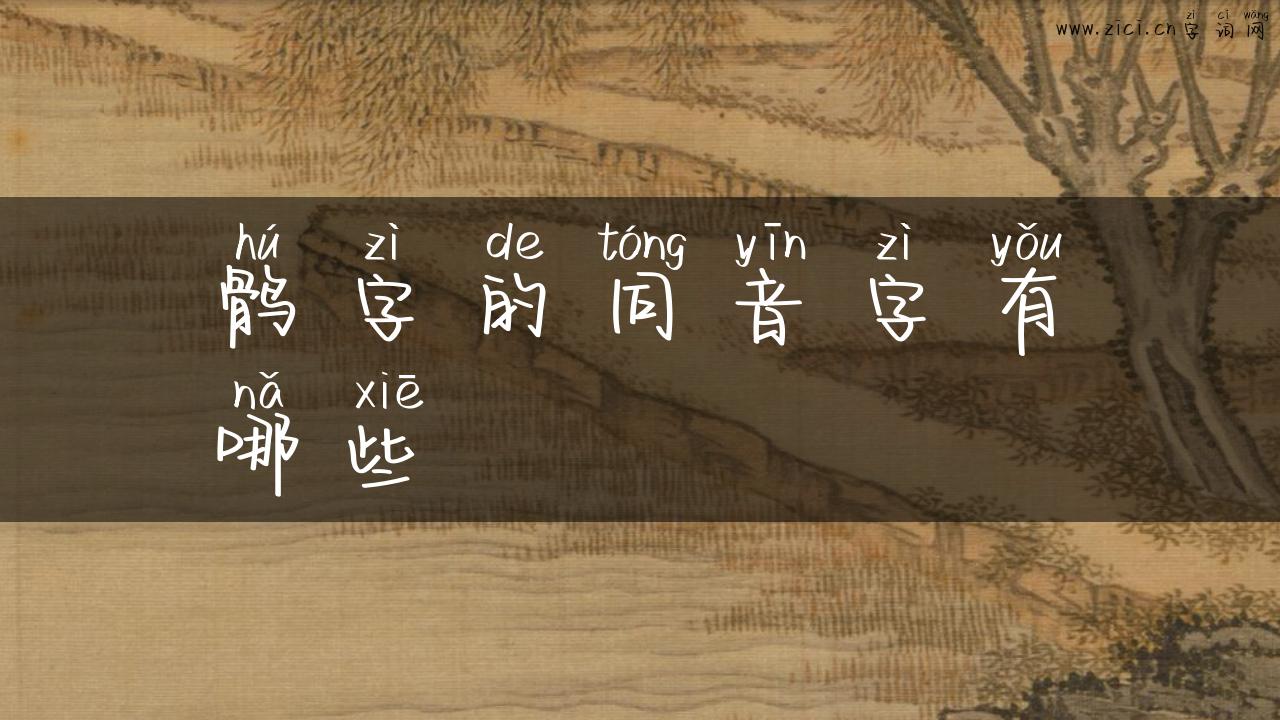 zì cí wǎng
www.zici.cn字词网
hú zì de tóng yīn zì yǒu
鹘字的同音字有
nǎ xiē
哪些